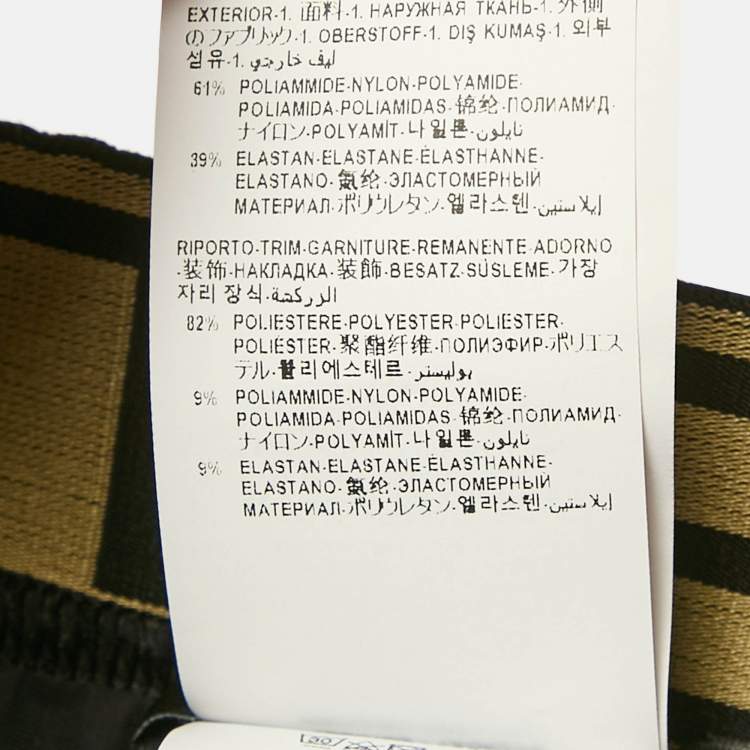 EXTERIOR-1. 面料-1. НАРУЖНАЯ ТКАНЬ-1. 外側
のファブリック-1. OBERSTOFF-1. DIŞ KUMAŞ-1. 외부
섬유-1. ليف خارجي
61% POLIAMMIDE-NYLON-POLYAMIDE-
POLIAMIDA-POLIAMIDAS-锦纶-ПОЛИАМИД-
ナイロン-POLYAMİT-나일론-نايلون
39% ELASTAN-ELASTANE-ÉLASTHANNE-
ELASTANO-氨纶-ЭЛАСТОМЕРНЫЙ
МАТЕРИАЛ-ポリウレタン-엘라스텐-إيلاستين
RIPORTO-TRIM-GARNITURE-REMANENTE-ADORNO
-装饰-НАКЛАДКА-装飾-BESATZ-SÜSLEME-가장
자리 장식-الزركشة
82% POLIESTERE-POLYESTER-POLIESTER-
POLIÉSTER-聚酯纤维-ПОЛИЭФИР-ポリエス
テル-폴리에스테르-بوليستر
9% POLIAMMIDE-NYLON-POLYAMIDE-
POLIAMIDA-POLIAMIDAS-锦纶-ПОЛИАМИД-
ナイロン-POLYAMİT-나일론-نايلون
9% ELASTAN-ELASTANE-ÉLASTHANNE-
ELASTANO-氨纶-ЭЛАСТОМЕРНЫЙ
МАТЕРИАЛ-ポリウレタン-엘라스텐-إيلاستين